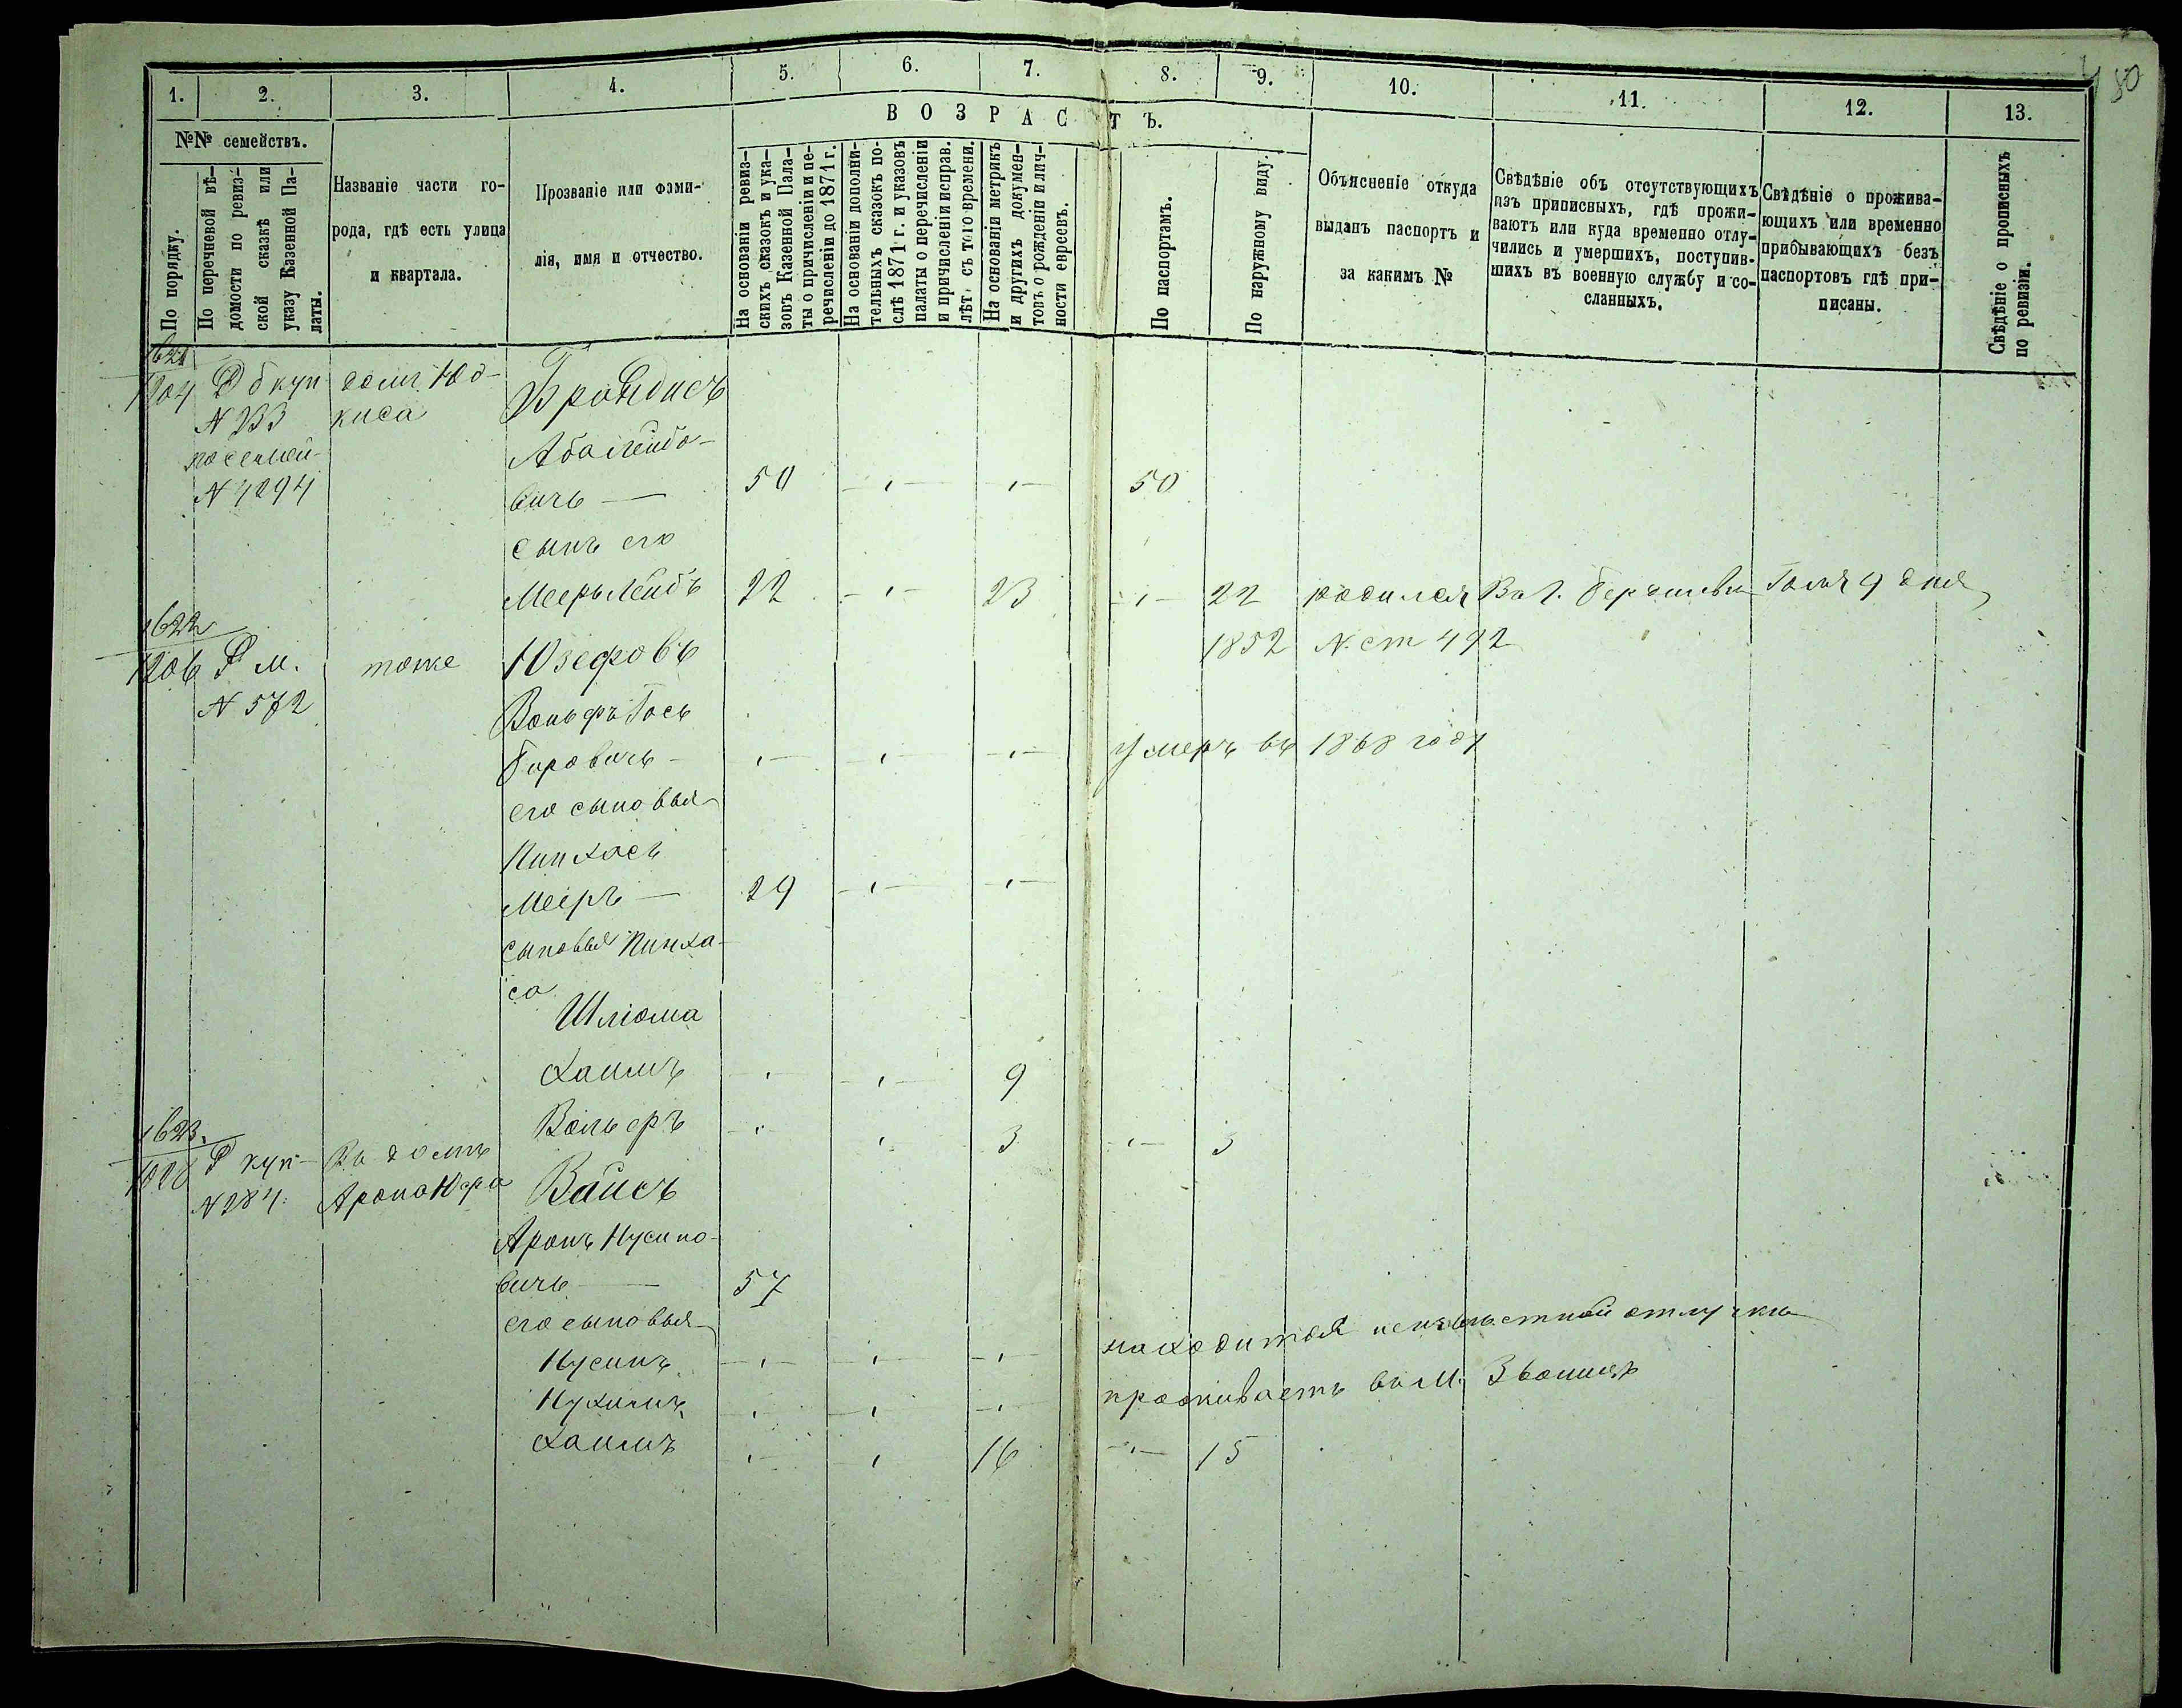 480
1. 2. 3. 4. 5. 6. 7. 8. 9. 10. 11. 12. 13.
№№ семействъ.
По порядку.
По перечневой вѣ-
домости по ревиз-
ской сказкѣ или
указу Казенной Па-
латы.
Названіе части го-
рода, гдѣ есть улица
и квартала.
Прозваніе или фами-
лія, имя и отчество.
ВОЗРАСТЪ.
На основаніи ревиз-
скихъ сказокъ и ука-
зовъ Казенной Пала-
ты о причисленіи и пе-
речисленіи до 1871 г.
На основаніи дополни-
тельныхъ сказокъ по-
слѣ 1871 г. и указовъ
палаты о перечисленіи
и причисленіи исправ.
лѣт. съ того времени.
На основаніи метрикъ
и другихъ докумен-
товъ о рожденіи и лич-
ности евреевъ.
По паспортамъ.
По наружному виду.
Объясненіе откуда
выданъ паспортъ и
за какимъ №
Свѣдѣніе объ отсутствующихъ
изъ приписныхъ, гдѣ прожи-
ваютъ или куда временно отлу-
чились и умершихъ, поступив-
шихъ въ военную службу и со-
сланныхъ.
Свѣдѣніе о прожива-
ющихъ или временно
прибывающихъ безъ
паспортовъ гдѣ при-
писаны.
Свѣдѣніе о прописныхъ
по ревизіи.
1621
1204 Р б куп домъ Юд- Брандисъ
N 233 киса
по семей- Аба Лейбо-
N 1294 вичь — 50 50
сынъ его
Мееръ Лейбъ 22 23 22 родился Въ г. Бершевѣ 9 дня
1852 N. ст 492
1622
1206 Р м. тоже Юзефовъ
N 572 Вольфъ Гось
Бировичь — Умеръ въ 1868 году
его сыновья
Пинхасъ
Мееръ — 29
сыновья Пинха-
са
Шліома
Хаимъ 9
Вольфъ 3 3
1623.
1028 Р куп- Въ домѣ Вайсъ
N 284. Арона
Аронъ Нусино-
вичь — 57
его сыновья
Нусинъ находится неизвѣстной отлучкѣ
Нухимъ проживаетъ въ М.
Хаимъ 16 15